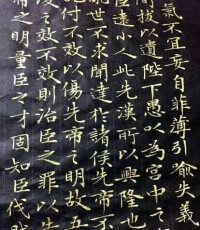 氣不宜妄自菲薄引喻失義
簡拔以遺陛下愚以為宮中之
臣遠小人此先漢所以興隆也
亂世不求聞達於諸侯先帝不
託付不效以傷先帝之明故五
復之效不效則治臣之罪以告
帝之明量臣之才固知臣伐賊